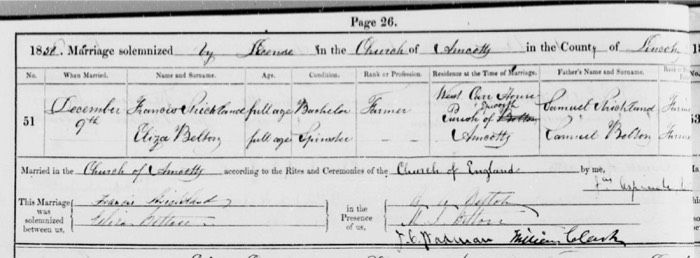 Page 26.
18 . Marriage solemnized by License in the Church of Amcotts in the County of Lincoln
No. When Married. Name and Surname. Age. Condition. Rank or Profession. Residence at the Time of Marriage. Father's Name and Surname.
51 December 9th
Francis Strickland full age Bachelor Farmer West Carr House Epworth Samuel Strickland
Parish of
Eliza Belton full age Spinster — — Amcotts Samuel Belton
Married in the Church of Amcotts according to the Rites and Ceremonies of the Church of England by me,
This Marriage was solemnized between us, Francis Strickland
Eliza Belton
in the Presence of us, Belton
Belton
William Clark